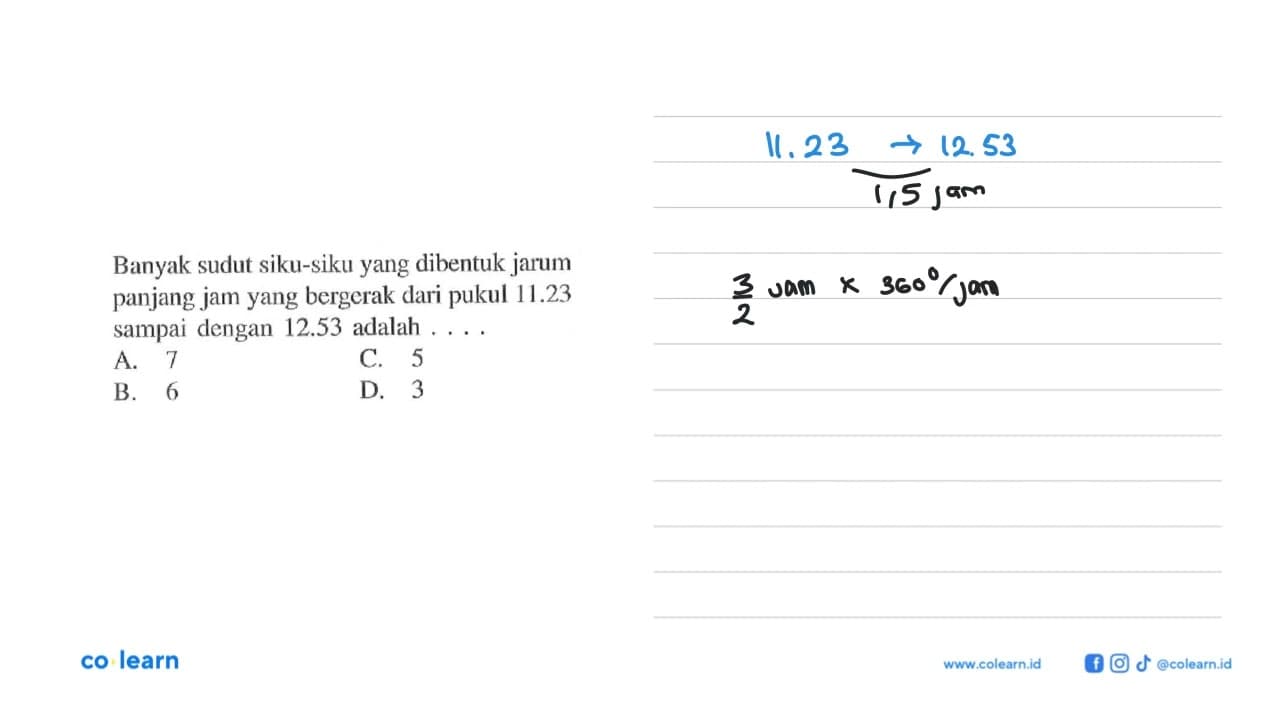 Banyak sudut siku-siku yang dibentuk jarum
panjang jam yang bergerak dari pukul 11.23
sampai dengan 12.53 adalah . . . .
A. 7 C. 5
B. 6 D. 3
11.23 → 12.53
1,5 jam
3/2 jam × 360°/jam
co learn
www.colearn.id @colearn.id